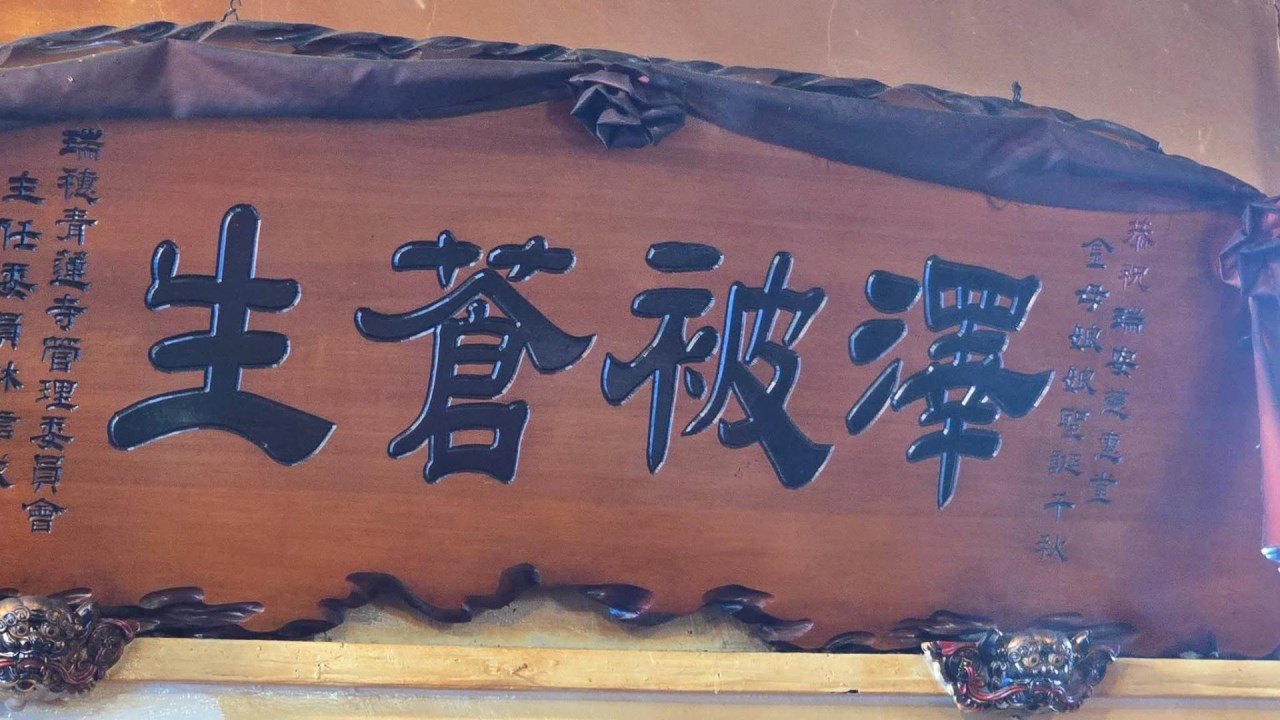 恭祝瑞安慈惠堂
金母娘娘聖誕千秋
澤被蒼生
瑞穗青蓮寺管理委員會
主任委員林